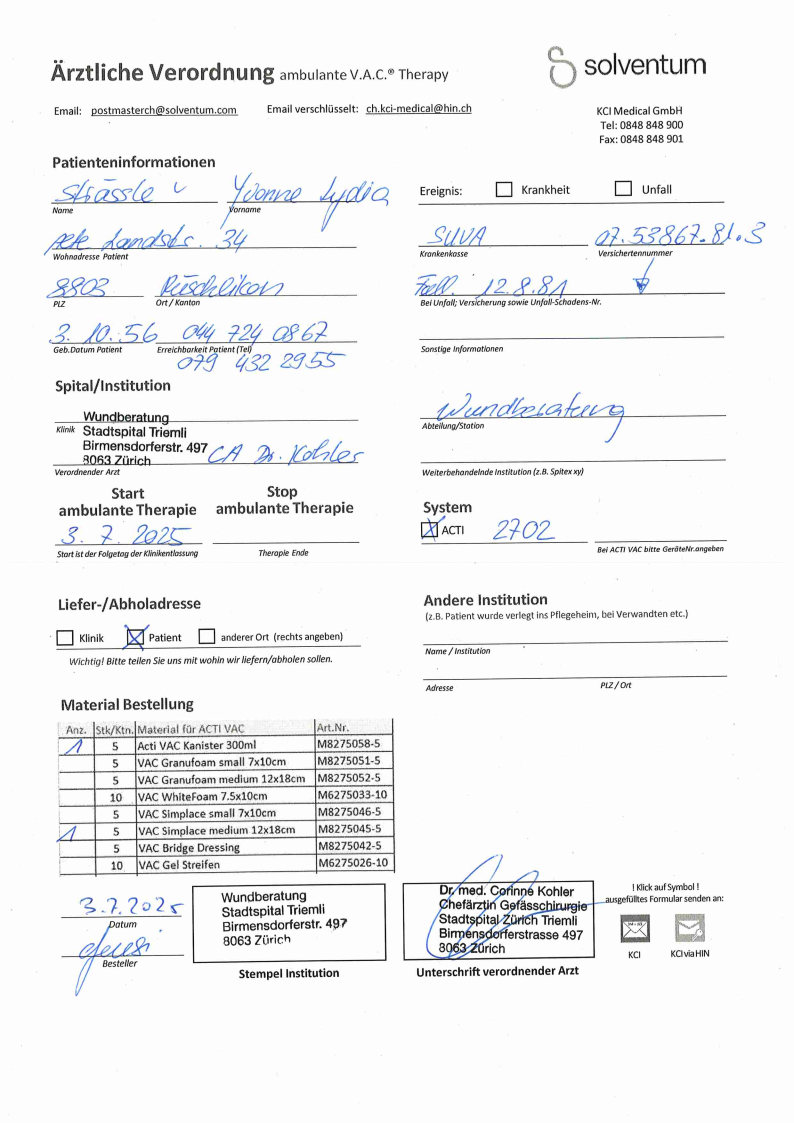 Ärztliche Verordnung ambulante V.A.C.® Therapy
solventum
Email: postmasterch@solventum.com Email verschlüsselt: ch.kci-medical@hin.ch
KCI Medical GmbH
Tel: 0848 848 900
Fax: 0848 848 901
Patienteninformationen
Strässle Yvonne Lydia
Name Vorname
Alte Landstr. 34
Wohnadresse Patient
8803 Rüschlikon
PLZ Ort / Kanton
3. 10. 56 044 724 0867
Geb.Datum Patient Erreichbarkeit Patient (Tel)
079 432 2955
Ereignis: Krankheit Unfall
SUVA 07.53867.81.3
Krankenkasse Versichertennummer
12.8.81
Bei Unfall; Versicherung sowie Unfall-Schadens-Nr.
Sonstige Informationen
Spital/Institution
Wundberatung
Klinik Stadtspital Triemli
Birmensdorferstr. 497
8063 Zürich CA Dr. Kohler
Verordnender Arzt
Wundberatung
Abteilung/Station
Weiterbehandelnde Institution (z.B. Spitex xy)
Start ambulante Therapie
Stop ambulante Therapie
3. 7. 2025
Start ist der Folgetag der Klinikentlassung Therapie Ende
System
ACTI 2702
Bei ACTI VAC bitte GeräteNr.angeben
Liefer-/Abholadresse
Klinik Patient anderer Ort (rechts angeben)
Wichtig! Bitte teilen Sie uns mit wohin wir liefern/abholen sollen.
Andere Institution
(z.B. Patient wurde verlegt ins Pflegeheim, bei Verwandten etc.)
Name / Institution
Adresse PLZ / Ort
Material Bestellung
Anz. Stk/Ktn. Material für ACTI VAC Art.Nr.
1 5 Acti VAC Kanister 300ml M8275058-5
5 VAC Granufoam small 7x10cm M8275051-5
5 VAC Granufoam medium 12x18cm M8275052-5
10 VAC WhiteFoam 7.5x10cm M6275033-10
5 VAC Simplace small 7x10cm M8275046-5
1 5 VAC Simplace medium 12x18cm M8275045-5
5 VAC Bridge Dressing M8275042-5
10 VAC Gel Streifen M6275026-10
3.7.2025
Datum
Besteller
Wundberatung
Stadtspital Triemli
Birmensdorferstr. 497
8063 Zürich
Stempel Institution
Dr. med. Corinne Kohler
Chefärztin Gefässchirurgie
Stadtspital Zürich Triemli
Birmensdorferstrasse 497
8063 Zürich
Unterschrift verordnender Arzt
! Klick auf Symbol !
ausgefülltes Formular senden an:
KCI KCI via HIN